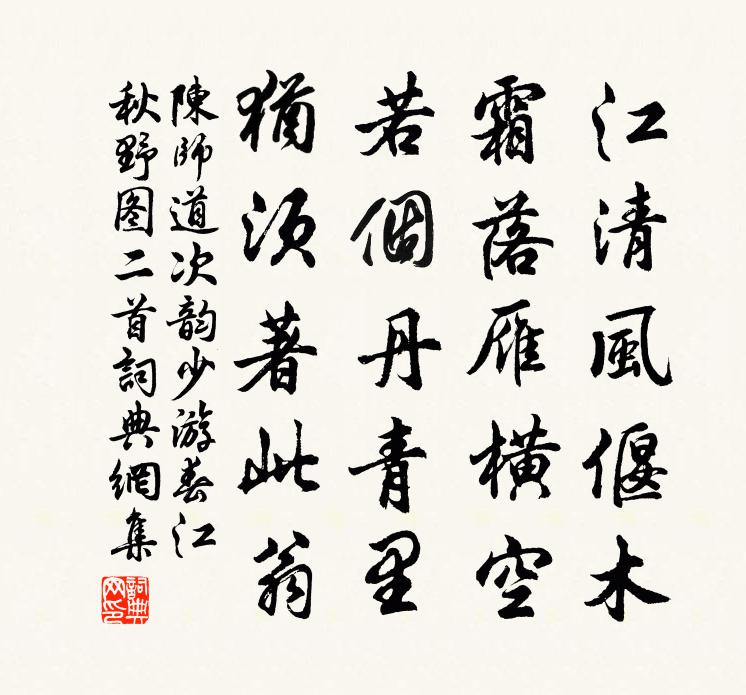 江清風偃木
霜落雁橫空
若個丹青里
猶須著此翁
陳師道次韵少游春江
秋野图二首詞典網集
詞典網印